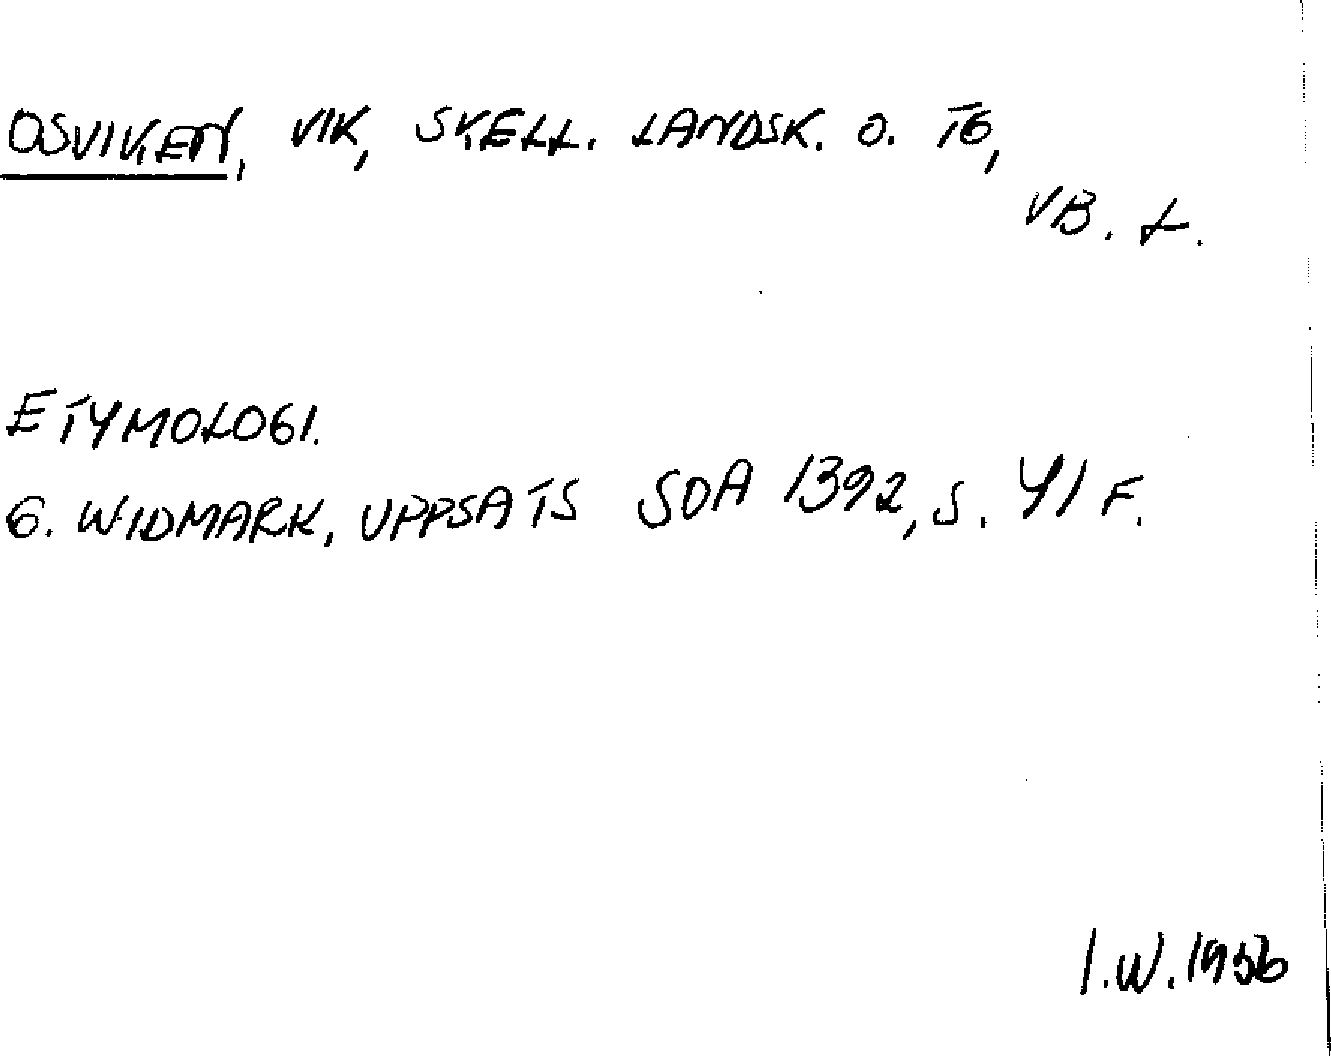 OSVIKEN, VIK, SKELL. LANDSK. O. TG,
VB. L.
ETYMOLOGI.
G. WIDMARK, UPPSATS SOA 1392, S. 41 F.
I.W. 1956